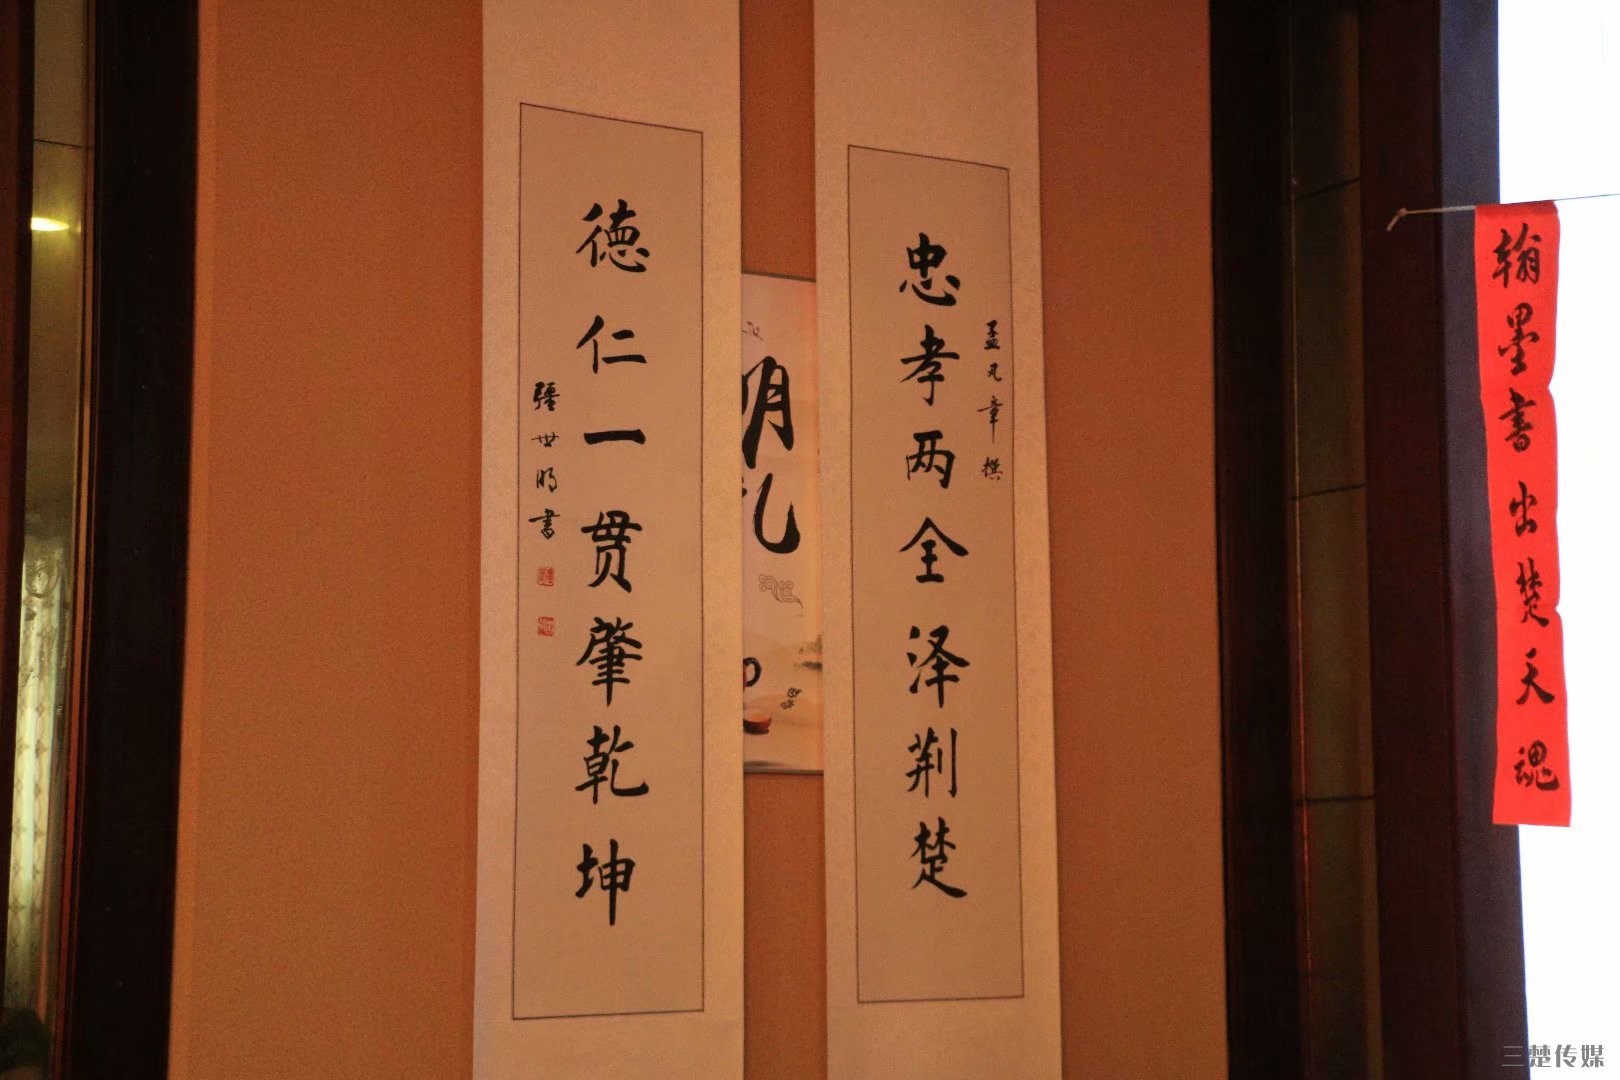 忠孝两全泽荆楚
孟凡章撰
德仁一贯肇乾坤
张世明书
明
礼
翰墨书出楚天魂
三楚传媒